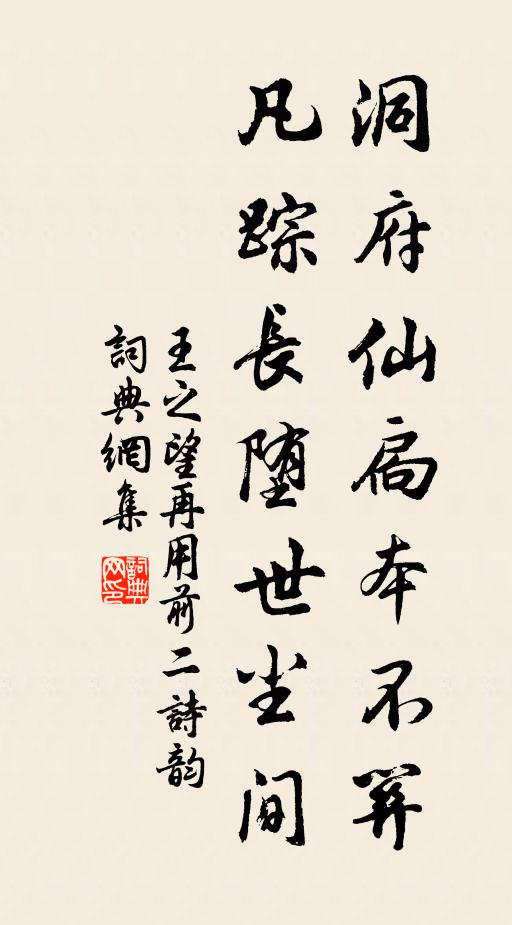 洞府仙扃本不関
凡踪長堕世尘间
王之望再用前二詩韵
詞典網集
詞典
网印